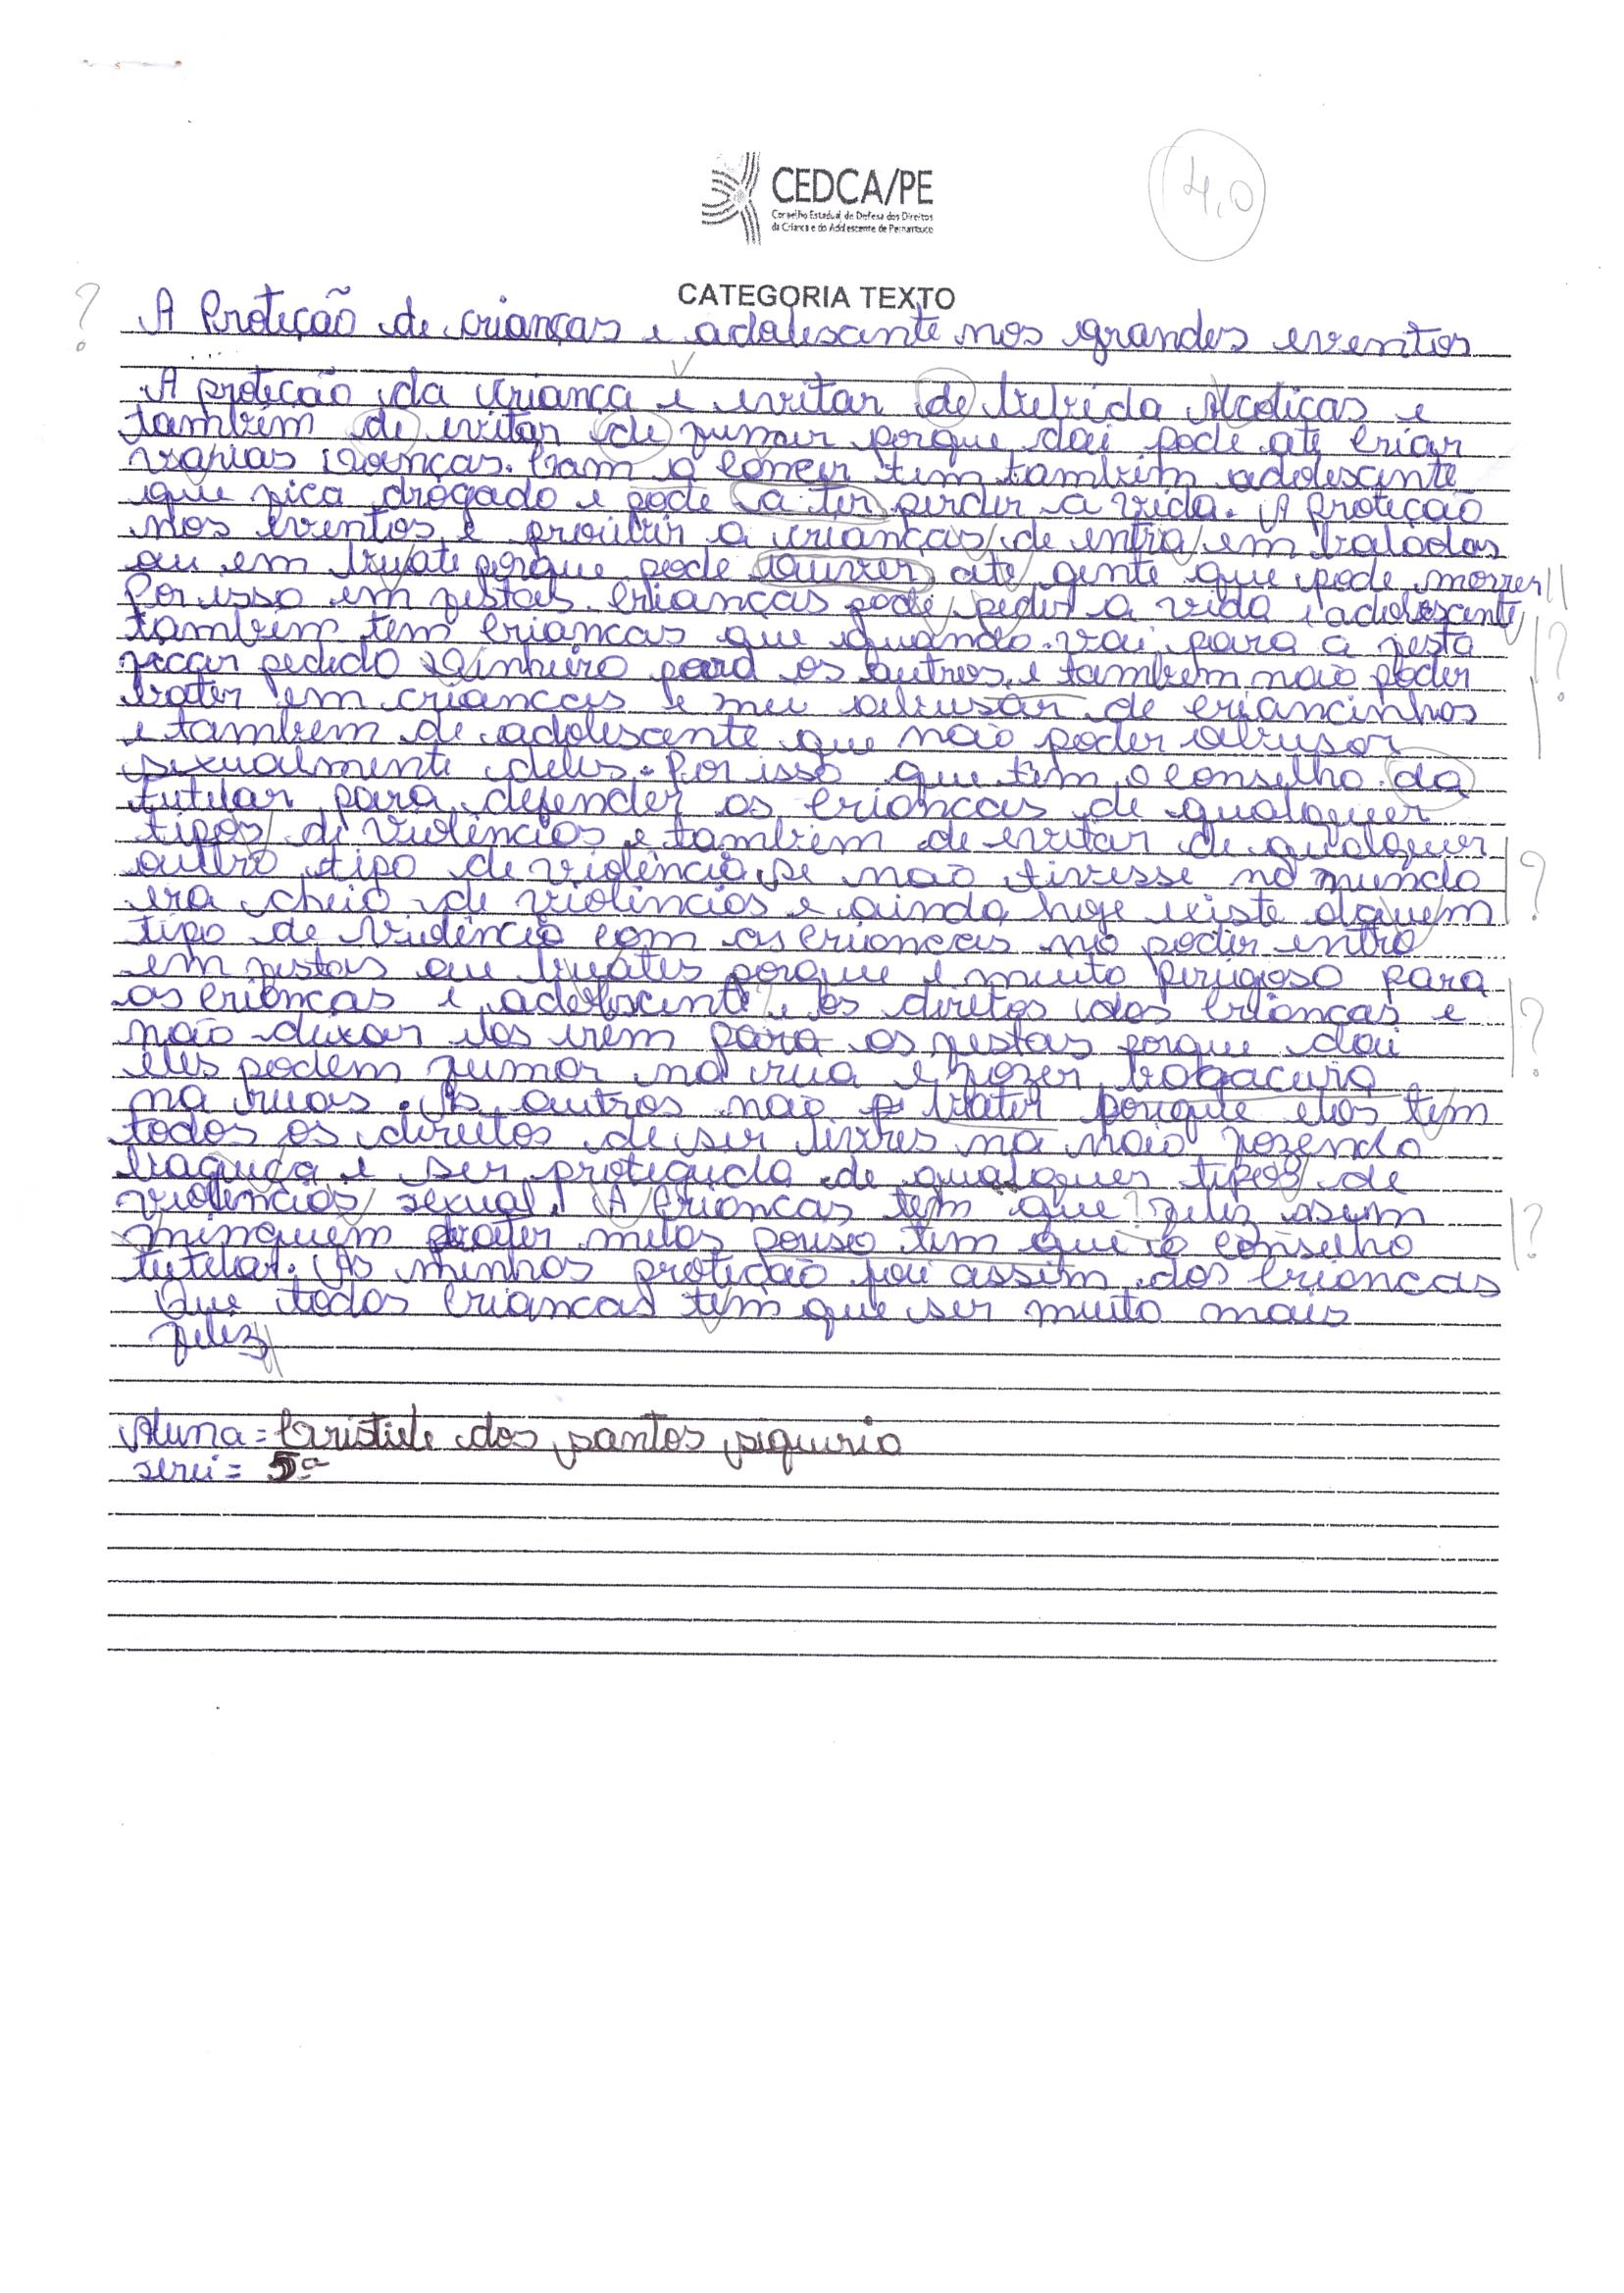 CEDCA/PE
Conselho Estadual de Defesa dos Direitos
da Criança e do Adolescente de Pernambuco
4,0
CATEGORIA TEXTO
? A Proteção de crianças e adolescente nos grandes eventos
A proteção da criança e evitar de bebida Alcoliças e
também de evitar de fumar porque dai pode até criar
varias doenças. Cam o cancer tem também adolescente
que fica drogado e pode a ter perder a vida. A proteção
nos eventos e proibir a crianças de entra em baladas
ou em buate porque pode ouver até gente que pode morrer
Por isso em festas crianças pode peder a vida e adolescente
também tem criancas que quando vai para a festa
ficar pedido dinheiro para os outros e tambem não poder
bater em criancas e meu abusar de criancinhas
e tambem de adolescente que não poder abusar
sexualmente deles. Por isso que tem o conselho da
tutelar para defender as criancas de qualquer
tipos di violências e tambem de evitar de qualquer
outro tipo de violência se não tivesse no mundo
era cheio de violências e ainda hoje existe alguem ?
tipo de violência com as criancas não poder entra
em festas ou buates porque e muito perigoso para
as crianças e adolescente e os diretos das crianças e
não deixar elas irem para as festas porque dai ?
eles podem fumar na rua e fazer
na ruas. As outros não bater porque elas tem
todos os direitos de ser livres na não fazendo
e ser proteguida de qualquer tipos de
violências sexual. A Criancas tem que ? feliz asim
ninguem bater nelas tem que o conselho ?
tutelar. As minhas proteção foi assim das criancas
Que todas criancas tem que ser muito mais
feliz
Aluna = dos santos
serei = 5ª